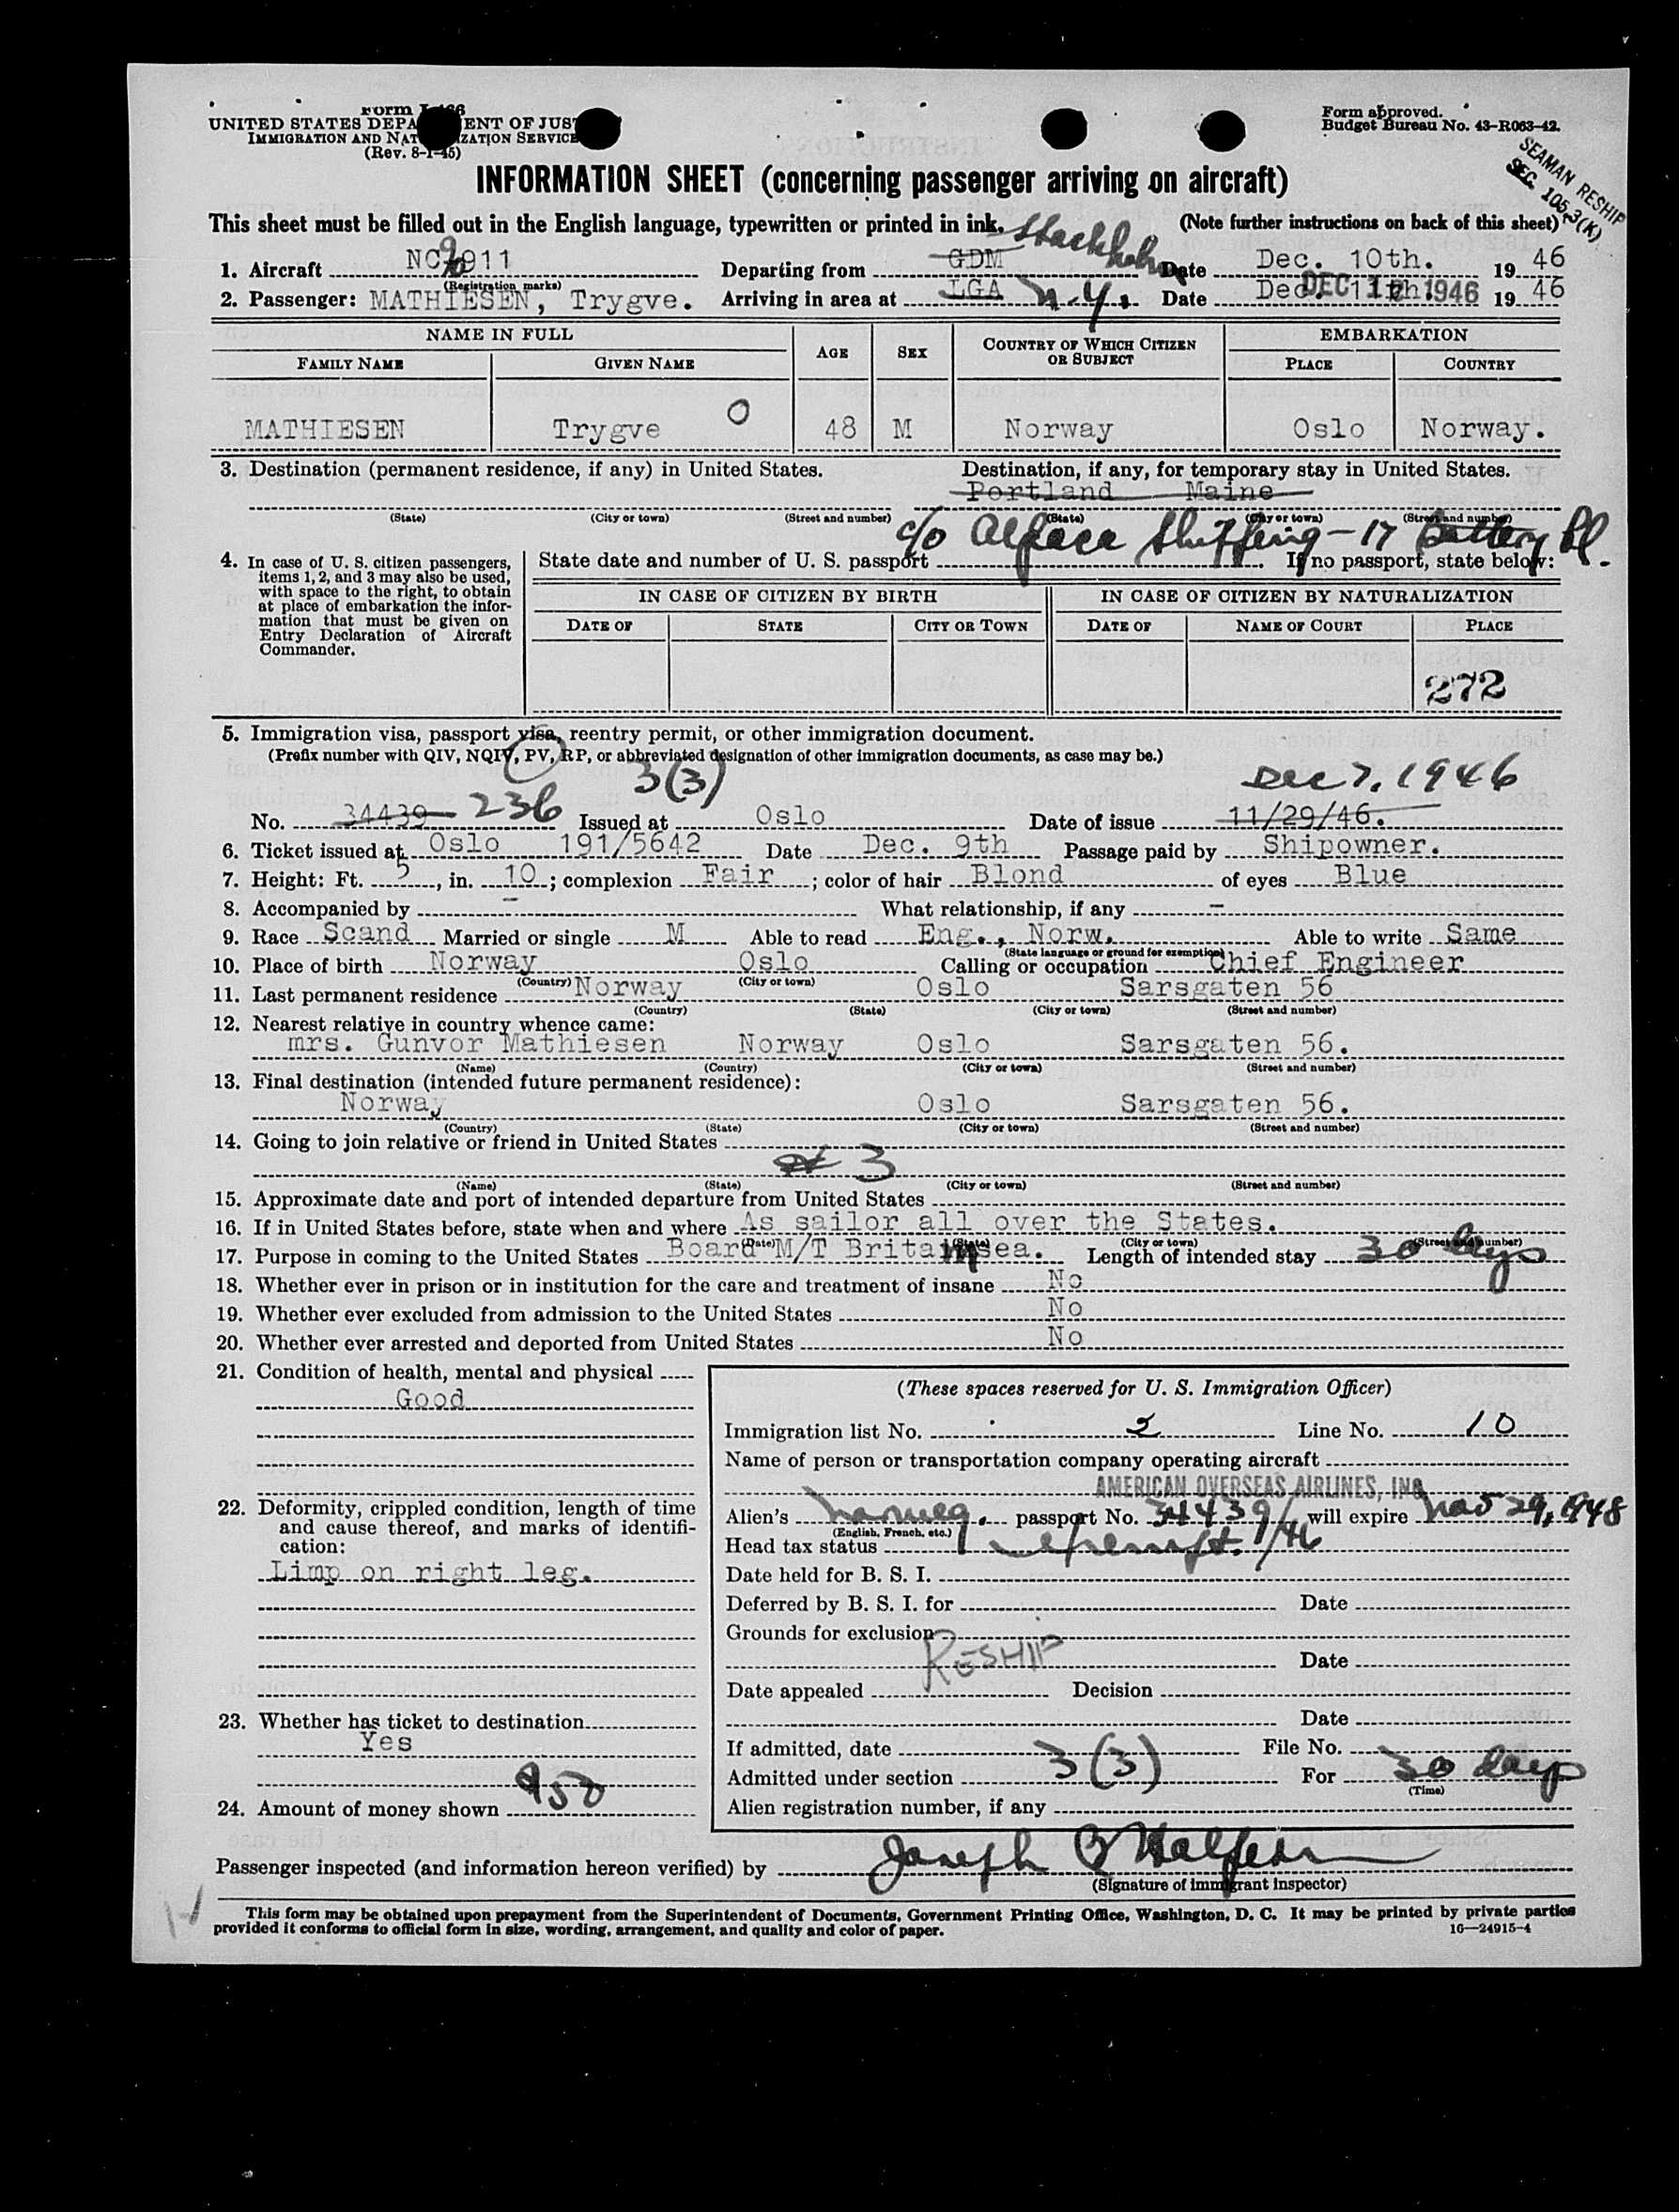 Form I-466
UNITED STATES DEPARTMENT OF JUSTICE
IMMIGRATION AND NATURALIZATION SERVICE
(Rev. 8-1-45)
Form approved.
Budget Bureau No. 43-R063-42.
SEAMAN RESHIP
SEC. 105.3(K)
INFORMATION SHEET (concerning passenger arriving on aircraft)
This sheet must be filled out in the English language, typewritten or printed in ink. (Note further instructions on back of this sheet)
1. Aircraft NC90911 Departing from GDM Stockholm Date Dec. 10th. 19 46
(Registration marks)
2. Passenger: MATHIESEN, Trygve. Arriving in area at LGA N.Y. Date Dec. 11th. DEC 12 1946 19 46
NAME IN FULL AGE SEX COUNTRY OF WHICH CITIZEN OR SUBJECT EMBARKATION
FAMILY NAME GIVEN NAME PLACE COUNTRY
MATHIESEN Trygve O 48 M Norway Oslo Norway.
3. Destination (permanent residence, if any) in United States. Destination, if any, for temporary stay in United States.
Portland Maine
(State) (City or town) (Street and number) (State) (City or town) (Street and number)
c/o Shipping - 17 Battery Pl.
4. In case of U. S. citizen passengers, items 1, 2, and 3 may also be used, with space to the right, to obtain at place of embarkation the information that must be given on Entry Declaration of Aircraft Commander.
State date and number of U. S. passport If no passport, state below:
IN CASE OF CITIZEN BY BIRTH IN CASE OF CITIZEN BY NATURALIZATION
DATE OF STATE CITY OR TOWN DATE OF NAME OF COURT PLACE
272
5. Immigration visa, passport visa, reentry permit, or other immigration document.
(Prefix number with QIV, NQIV, PV, RP, or abbreviated designation of other immigration documents, as case may be.)
3(3) Dec 7, 1946
No. 34439 236 Issued at Oslo Date of issue 11/29/46.
6. Ticket issued at Oslo 191/5642 Date Dec. 9th Passage paid by Shipowner.
7. Height: Ft. 5, in. 10; complexion Fair; color of hair Blond of eyes Blue
8. Accompanied by - What relationship, if any -
9. Race Scand Married or single M Able to read Eng., Norw. Able to write Same
(State language or ground for exemption)
10. Place of birth Norway Oslo Calling or occupation Chief Engineer
(Country) (City or town)
11. Last permanent residence Norway Oslo Sarsgaten 56
(Country) (State) (City or town) (Street and number)
12. Nearest relative in country whence came:
mrs. Gunvor Mathiesen Norway Oslo Sarsgaten 56.
(Name) (Country) (City or town) (Street and number)
13. Final destination (intended future permanent residence):
Norway Oslo Sarsgaten 56.
(Country) (State) (City or town) (Street and number)
14. Going to join relative or friend in United States
3
(Name) (State) (City or town) (Street and number)
15. Approximate date and port of intended departure from United States
16. If in United States before, state when and where As sailor all over the States.
(Date) (State) (City or town) (Street and number)
17. Purpose in coming to the United States Board M/T Britamsea. Length of intended stay 30 days
18. Whether ever in prison or in institution for the care and treatment of insane No
19. Whether ever excluded from admission to the United States No
20. Whether ever arrested and deported from United States No
21. Condition of health, mental and physical
Good
22. Deformity, crippled condition, length of time and cause thereof, and marks of identification:
Limp on right leg.
23. Whether has ticket to destination
Yes
24. Amount of money shown $50
(These spaces reserved for U. S. Immigration Officer)
Immigration list No. 2 Line No. 10
Name of person or transportation company operating aircraft
AMERICAN OVERSEAS AIRLINES, INC.
Alien's Norweg. passport No. 34439/ will expire Nov 29, 1948
(English, French, etc.) 1/46
Head tax status exempt.
Date held for B. S. I.
Deferred by B. S. I. for Date
Grounds for exclusion
RESHIP Date
Date appealed Decision
Date
If admitted, date File No.
Admitted under section 3(3) For 30 days
(Time)
Alien registration number, if any
Passenger inspected (and information hereon verified) by Joseph
(Signature of immigrant inspector)
This form may be obtained upon prepayment from the Superintendent of Documents, Government Printing Office, Washington, D. C. It may be printed by private parties
provided it conforms to official form in size, wording, arrangement, and quality and color of paper.
16—24915-4